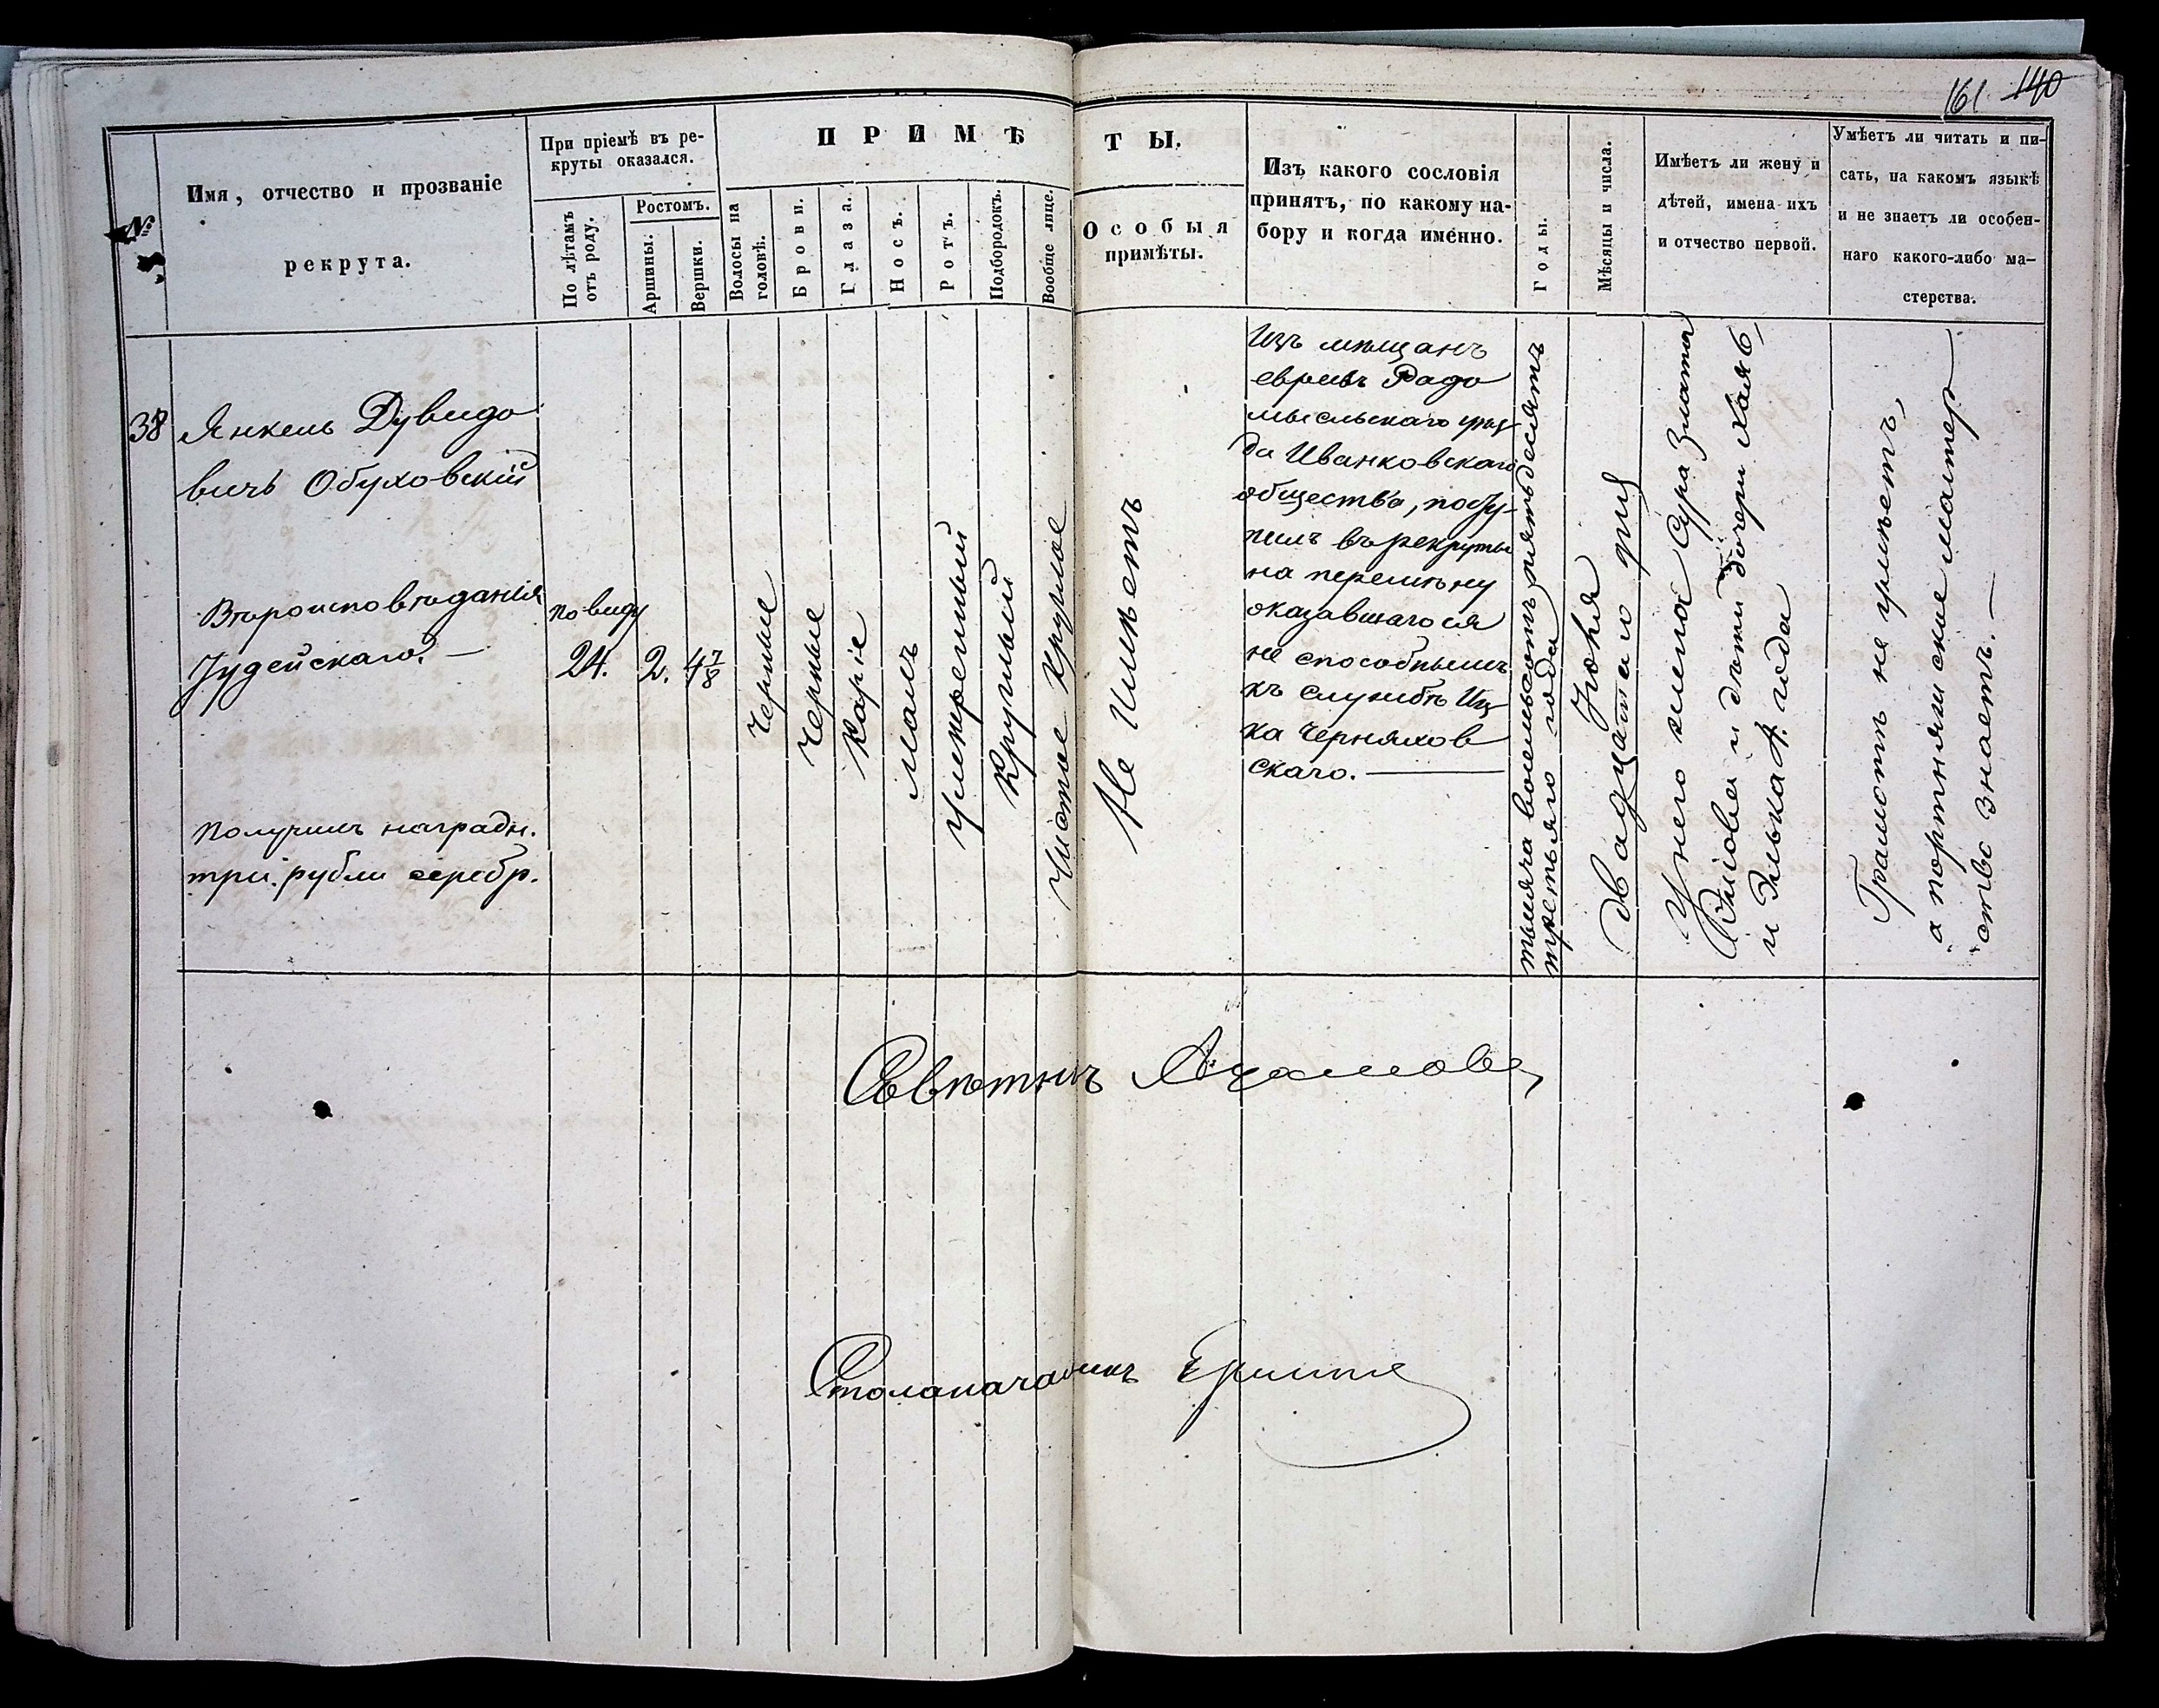 161 140
№
Имя, отчество и прозваніе
рекрута.
При пріемѣ въ ре-
круты оказался.
По лѣтамъ
отъ роду.
Ростомъ.
Аршины.
Вершки.
ПРИМѢТЫ.
Волосы на
головѣ.
Брови.
Глаза.
Носъ.
Ротъ.
Подбородокъ.
Вообще лице.
Особыя
примѣты.
Изъ какого сословія
принятъ, по какому на-
бору и когда именно.
Годы.
Мѣсяцы и числа.
Имѣетъ ли жену и
дѣтей, имена ихъ
и отчество первой.
Умѣетъ ли читать и пи-
сать, на какомъ языкѣ
и не знаетъ ли особен-
наго какого-либо ма-
стерства.
38
Янкель Дувидо
вичъ Обуховскій
Вѣроисповѣданія
Іудейскаго. —
Получилъ наградн.
три рубли серебр.
по виду
24.
2.
4 7/8
Черные
Черные
Каріе
малъ
умѣренный
Круглый
Чистое Круглое
Не имѣетъ
Изъ мѣщанъ
евреевъ Радо
мысльскаго уѣз
да Иванковскаго
общества, посту-
пилъ въ рекруты
на перемѣну
оказавшагося
не способнымъ
къ службѣ Иц
ка Черняхов
скаго. —
тысяча восемьсотъ пятьдесятъ
третьяго года
Іюня
двадцатаго
У него жена Сура Злата
и дѣти дочери Хая 6,
и Элька 4. года
Грамотѣ не умѣетъ,
а портняжское мастер
ство знаетъ. —
Совѣтникъ
Столоначальникъ